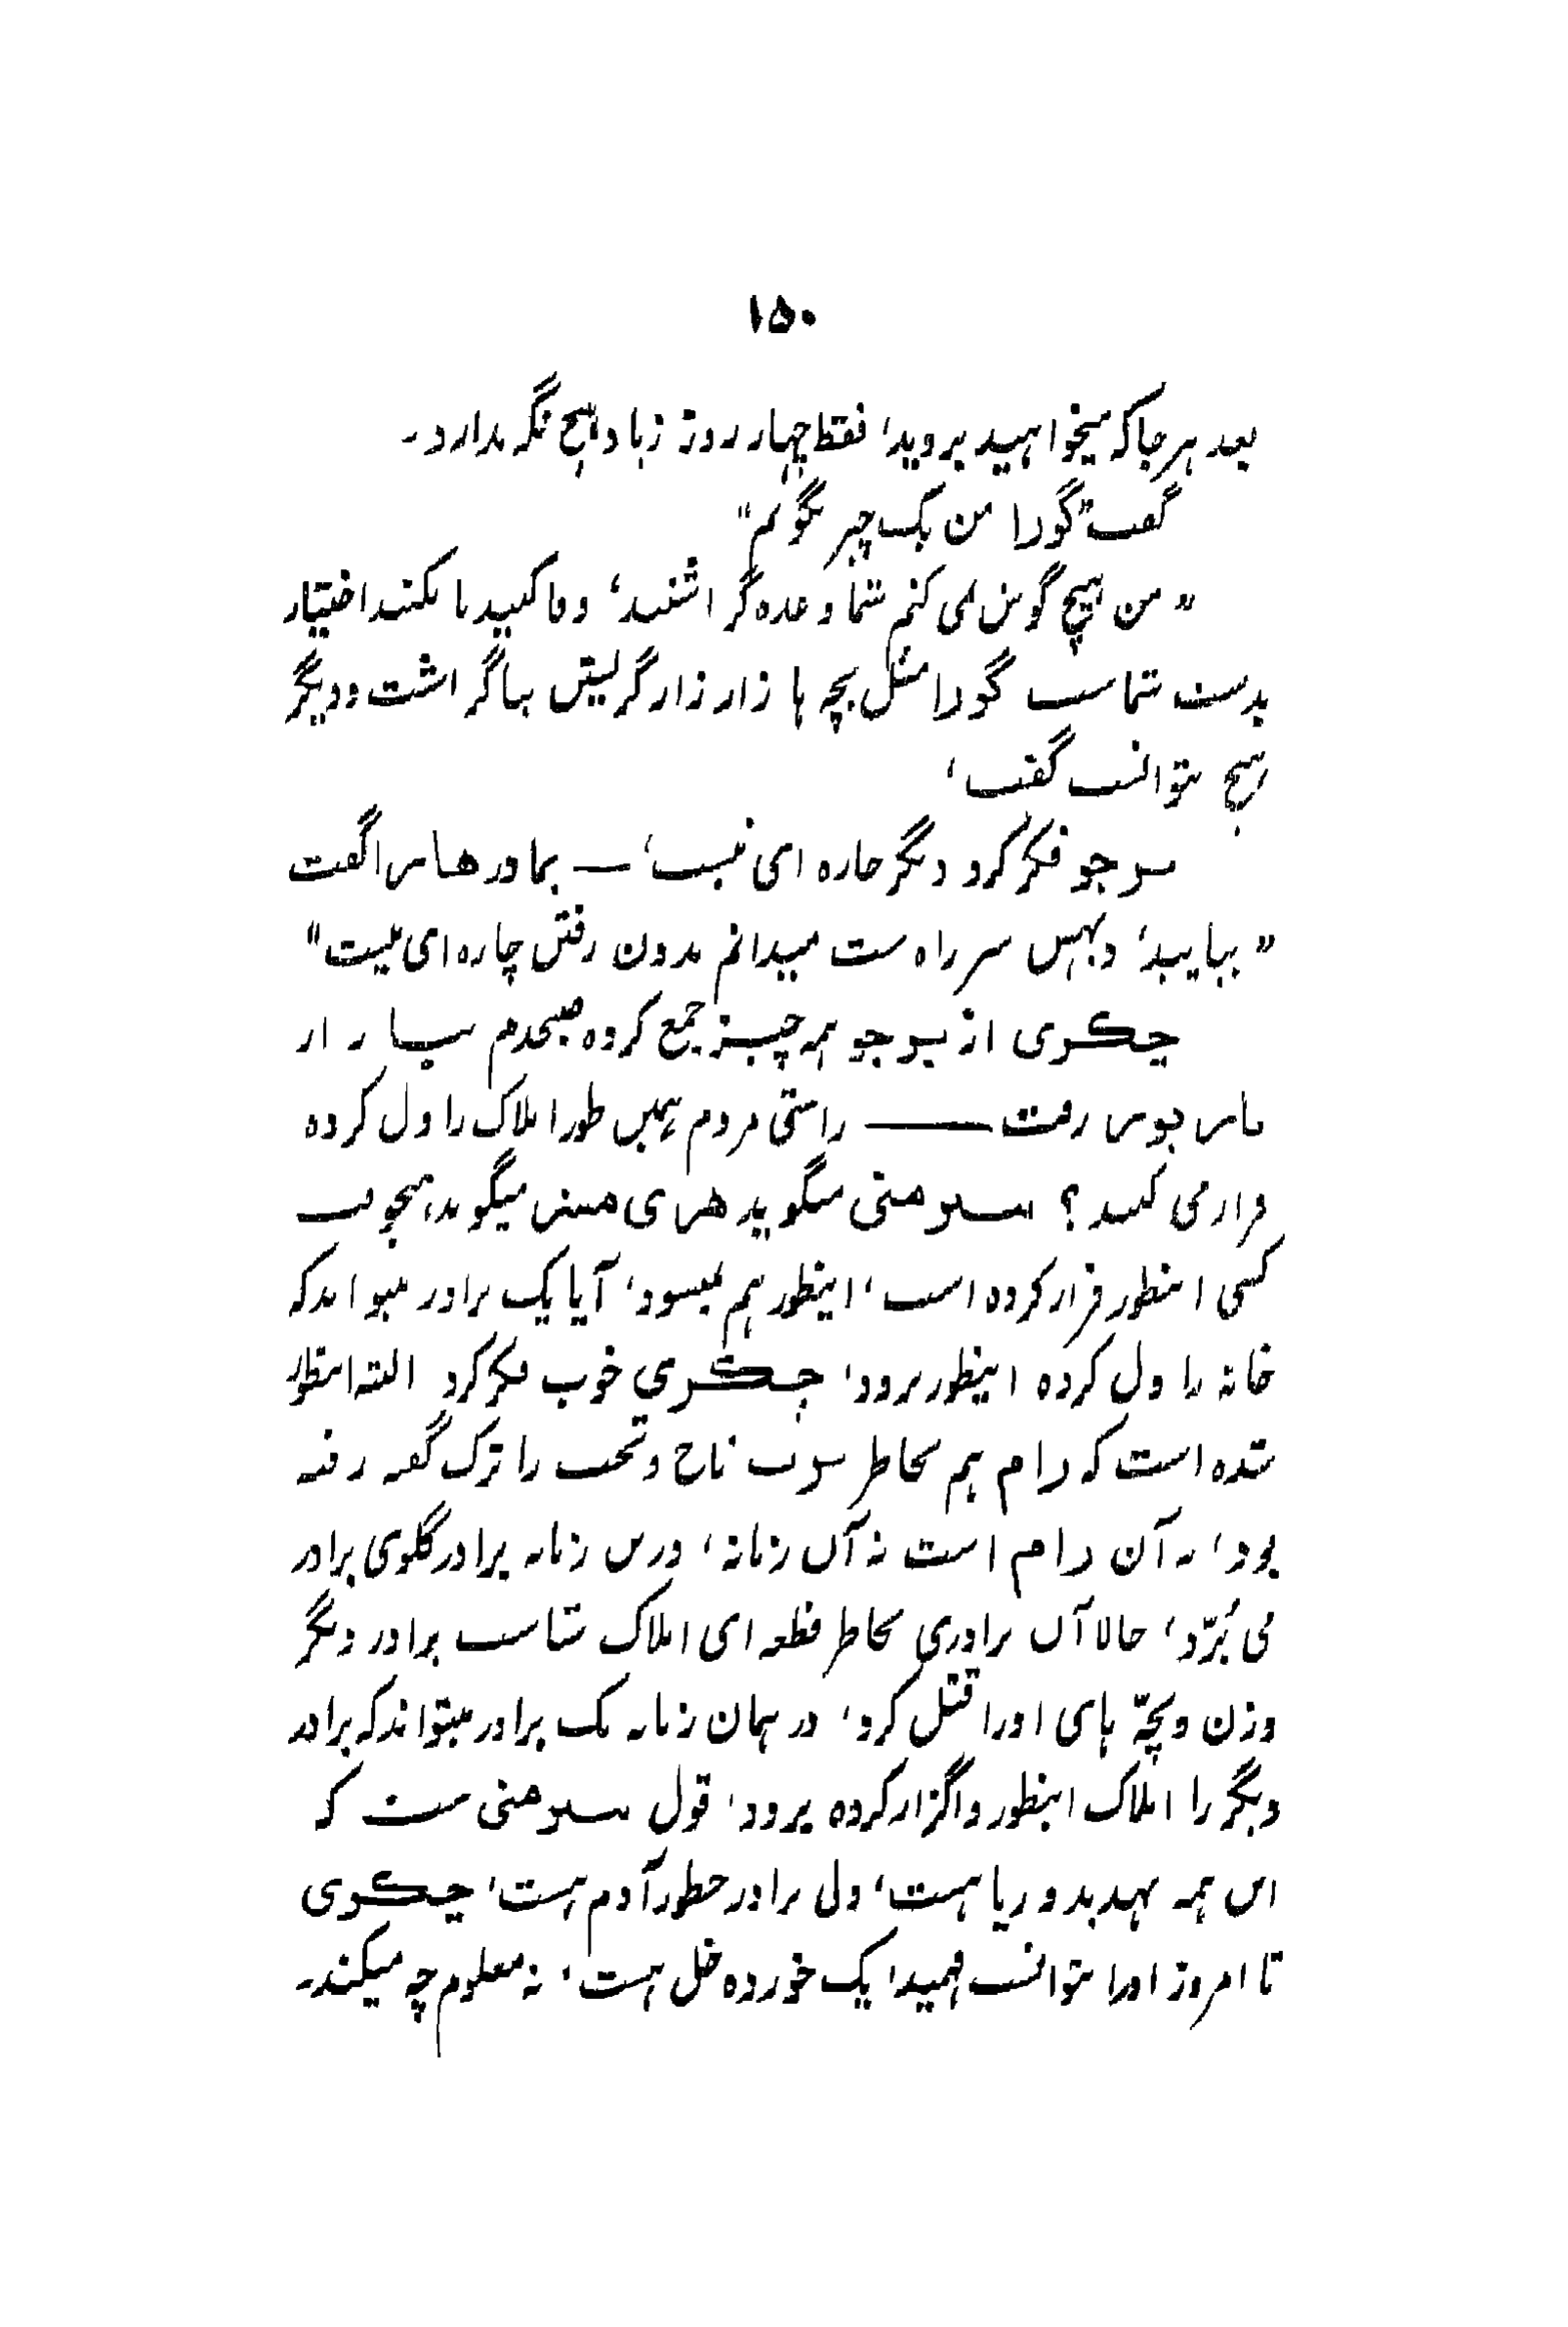 ۱۵۰
بعد هر جا که میخواهید بروید، فقط چهار روز زیاد هیچ نگه ندارد۔
گفت گورا من یک چیز بگویم"
"من هیچ گوش نمی کنم شما وعده گزاشتید، وفا کنید یا نکنید اختیار
بدست شماست گورا مثل بچه ها زار زار گریش بپا گزاشت و دیگر
هیچ نتوانست گفت،
برجو فکر کرد دیگر چاره ای نیست، — بماورها گفت
"بیایید، وبهس سر راه ست میدانم بدون رفتن چاره ای نیست"
چکری از برجو همه چیز جمع کرده صبحدم
رفت —— راستی مردم همین طور املاک را ول کرده
فرار می کنند؟ میگوید هری میگوید، هیچوقت
کسی اینطور فرار کرده است، اینطور هم نمیشود، آیا یک برادر میتواند که
خانه را ول کرده اینطور برود، چکری خوب فکر کرد البته اینطور
شده است که رام هم بخاطر تاج و تخت را ترک گفته رفته
بود، نه آن رام است نه آن زمانه، درین زمانه برادر گلوی برادر
می بُرّد، حالا آن برادری بخاطر قطعه ای املاک شاست برادر دیگر
وزن و بچّه های اورا قتل کرد، در همان زمانه یک برادر میتواند که برادر
دیگر را املاک اینطور واگزار کرده برود، قول ست که
این همه تهدید و ریا هست، ولی برادر چطور آدم هست، چکری
تا امروز اورا نتوانست فهمید، یک خورده خل هست، نه معلوم چه میکند۔